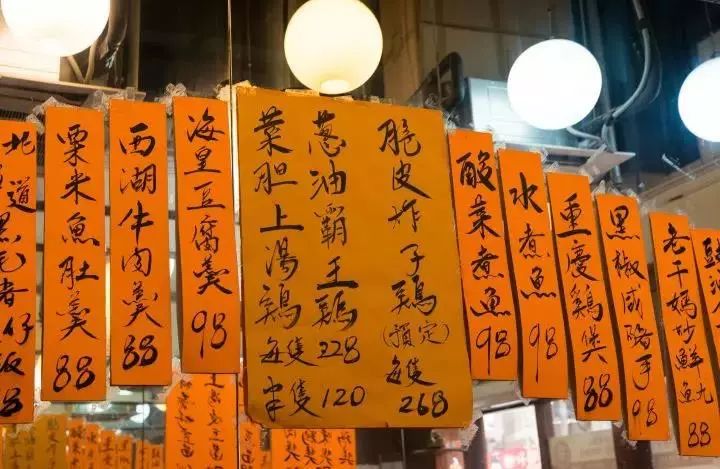 老干媽炒鮮魷 88
黑椒咸豬手 98
重慶鷄煲 88
水煮魚 98
酸菜煮魚 98
脆皮炸子鷄(預定)每隻 268
葱油霸王鷄
菜胆上湯鷄
每隻 228
半隻 120
海皇豆腐羹 98
西湖牛肉羹 88
栗米魚肚羹 88